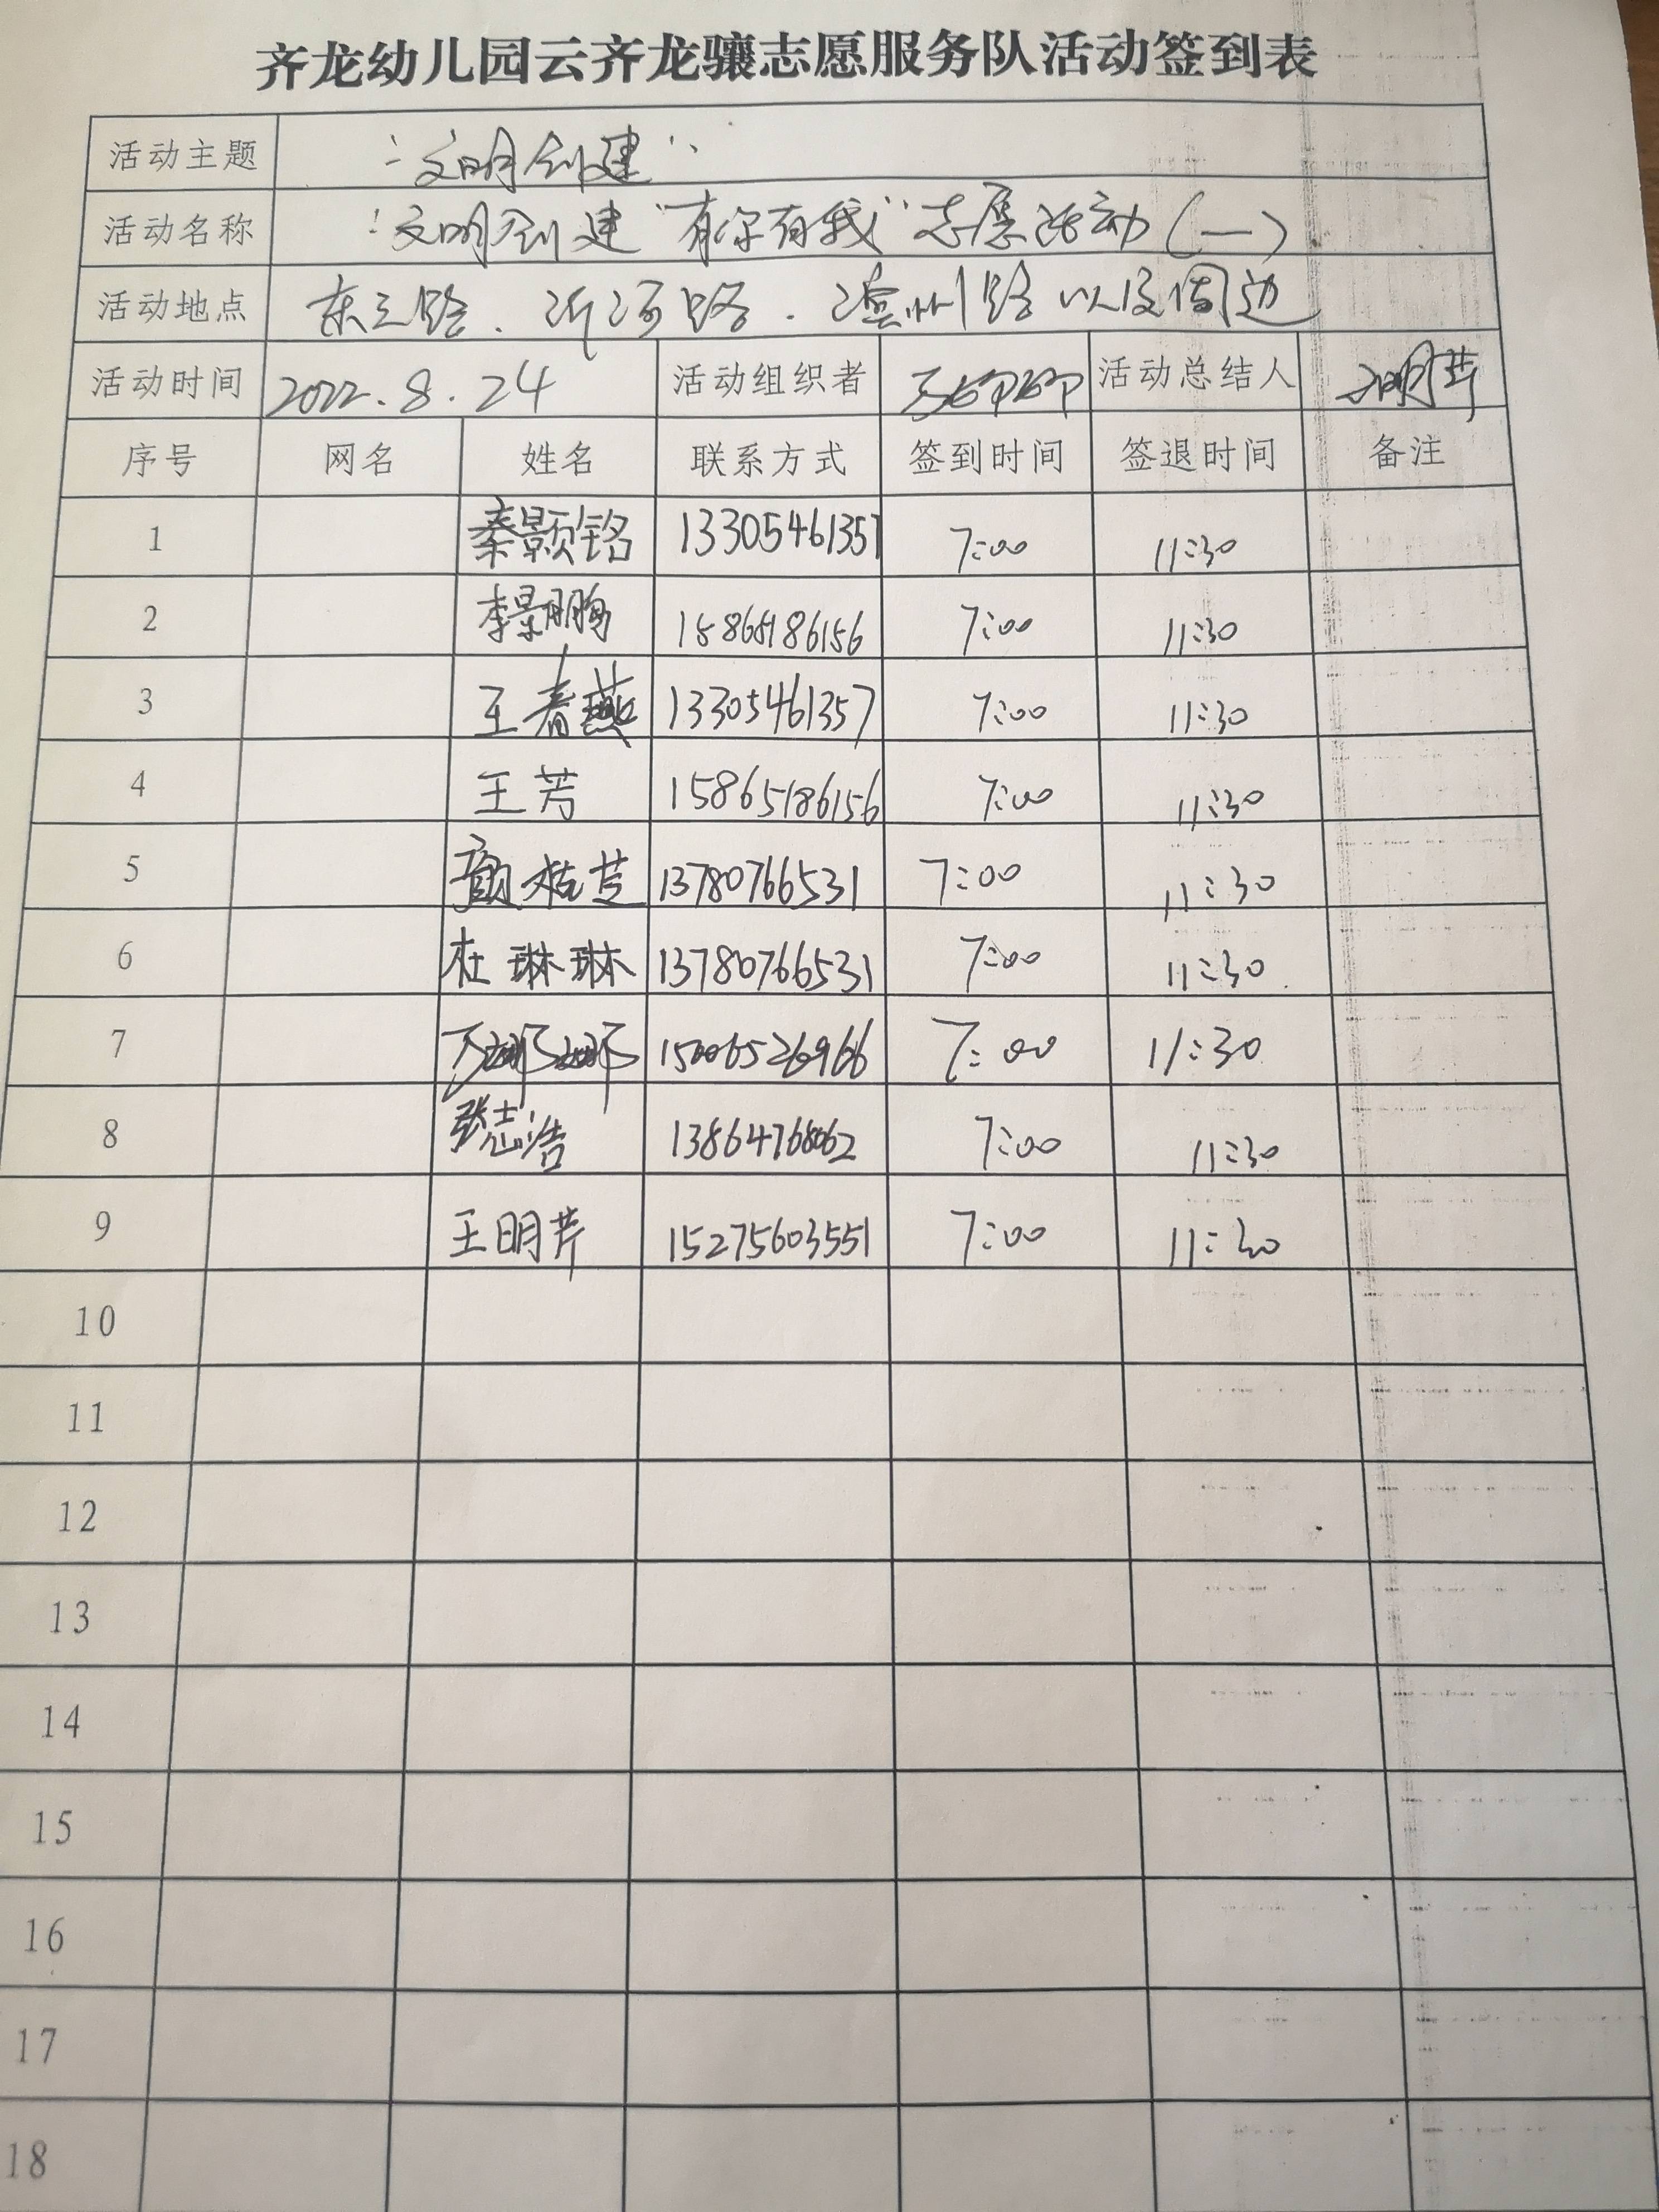 齐龙幼儿园云齐龙骧志愿服务队活动签到表
活动主题 “文明创建”
活动名称 “文明创建“有你有我”志愿活动(一)
活动地点 东三路、沂河路、滨州路以及周边
活动时间 2022.8.24 活动组织者 活动总结人 王明芹
序号 网名 姓名 联系方式 签到时间 签退时间 备注
1 秦颢铭 13305461357 7:00 11:30
2 李景鹏 15865186156 7:00 11:30
3 王春燕 13305461357 7:00 11:30
4 王芳 15865186156 7:00 11:30
5 颜桂芝 13780766531 7:00 11:30
6 杜琳琳 13780766531 7:00 11:30
7 万娜娜 15006526966 7:00 11:30
8 张志浩 13864768062 7:00 11:30
9 王明芹 15275603551 7:00 11:30
10
11
12
13
14
15
16
17
18